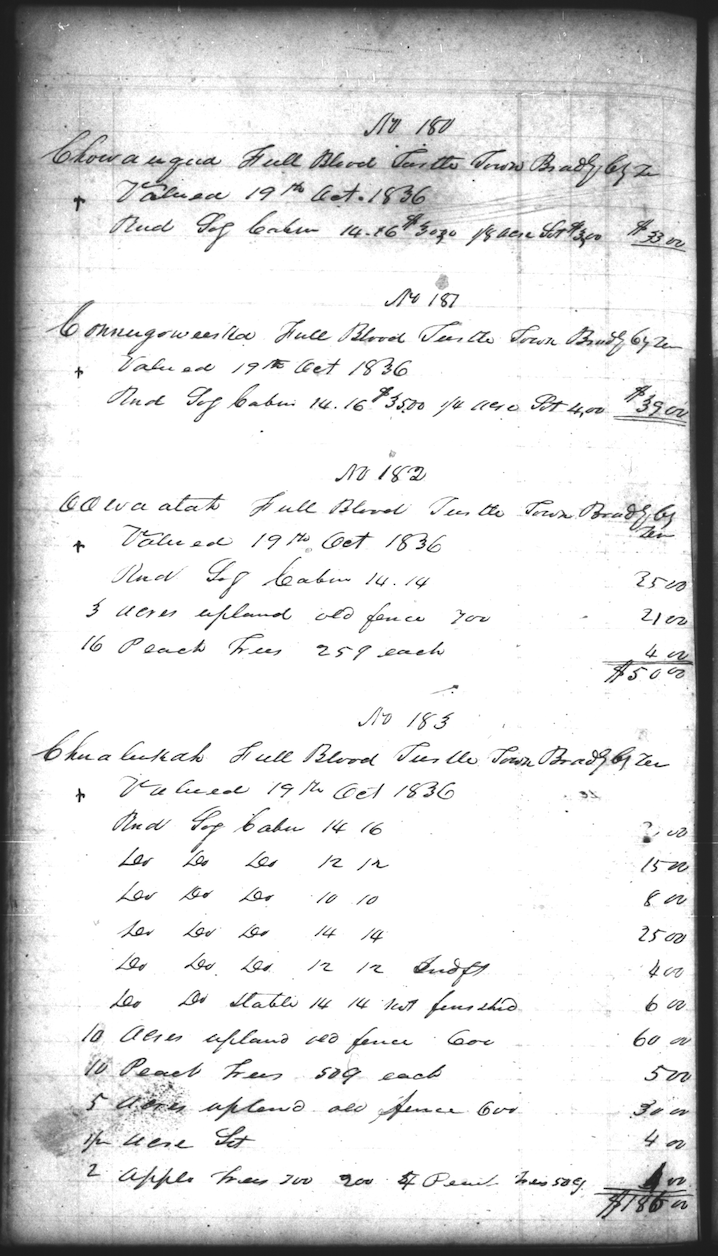 No 180
Chowauqua Full Blood Turtle Town Bradly Cy Ten
Valued 19th Oct. 1836
Rnd Log Cabin 14.16 $30,00 1/8 acre Lot $3,00 $33 00
No 181
Connugoweeska Full Blood Turtle Town Bradly Cy Ten
Valued 19th Oct 1836
Rnd Log Cabin 14.16 $35,00 1/4 acre Lot 4,00 $39 00
No 182
Full Blood Turtle Town Bradly Cy
Ten
Valued 19th Oct 1836
Rnd Log Cabin 14.14 25 00
3 acres upland old fence 700 21 00
16 Peach Trees 25¢ each 4 00
$50 00
No 183
Chualuskah Full Blood Turtle Town Bradly Cy Ten
Valued 19th Oct 1836
Rnd Log Cabin 14 16
Do Do Do 12 12 15 00
Do Do Do 10 10 8 00
Do Do Do 14 14 25 00
Do Do Do 12 12 Indft 4 00
Do Do Stable 14 14 not finished 6 00
10 Acres upland old fence 600 60 00
10 Peach Trees 50¢ each 5 00
5 Acres upland old fence 600 30 00
1/2 acre Lot 4 00
2 Apple Trees Peach Trees 50¢
$186 00